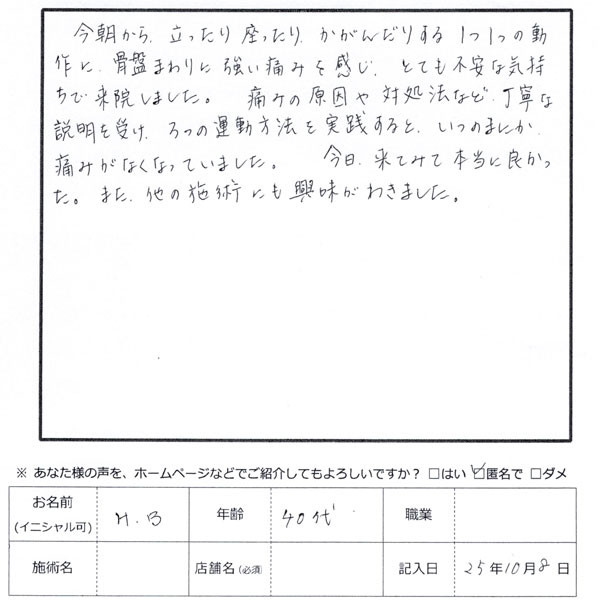 今朝から、立ったり座ったり、かがんだりする1つ1つの動
作に、骨盤まわりに強い痛みを感じ、とても不安な気持
ちで来院しました。 痛みの原因や対処法など、丁寧な
説明を受け、3つの運動方法を実践すると、いつのまにか、
痛みがなくなっていました。 今日、来てみて本当に良かっ
た。また、他の施術にも興味がわきました。
※ あなた様の声を、ホームページなどでご紹介してもよろしいですか？ □はい ☑匿名で □ダメ
お名前
(イニシャル可) H.B 年齢 40代 職業
施術名 店舗名(必須) 記入日 25年10月8日